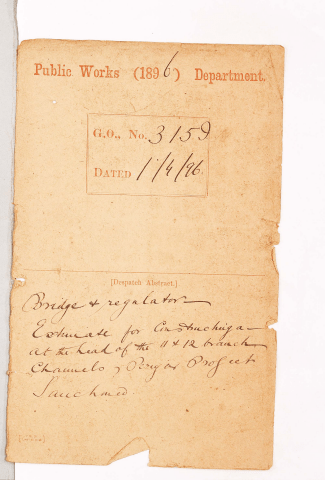 Public Works (1896) Department.
G.O., No. 3159
DATED 1/4/96.
[Despatch Abstract.]
Bridge & regulator
Estimate for Constructing a
at the head of the 11 & 12 branch
Channels, Periyar Project
Sanctioned